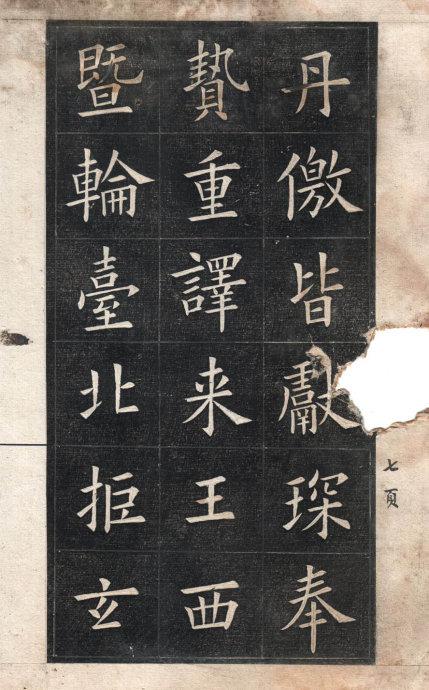 丹徼皆獻琛奉
贄重譯来王西
暨輪臺北拒玄
七頁